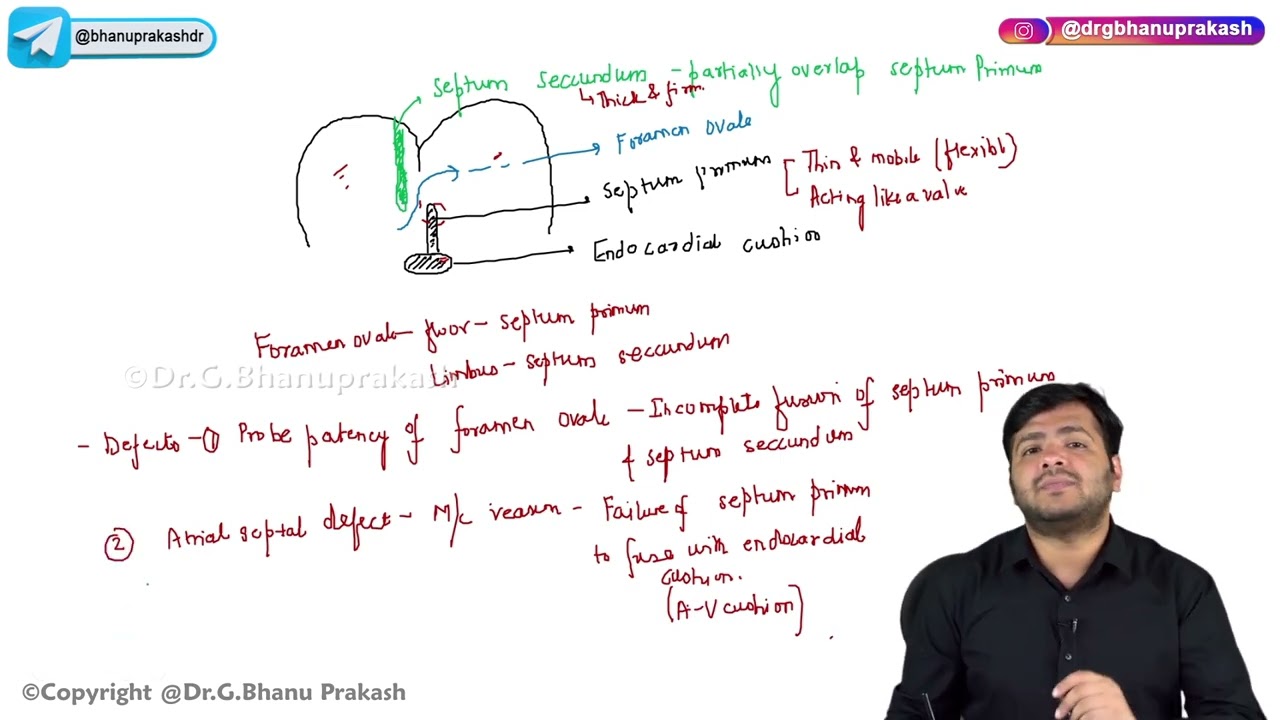 @bhanuprakashdr
@drgbhanuprakash
Septum seccundum - partially overlap septum Primum
↳ Thick & firm.
Foramen ovale
Septum primum
Thin & mobile (flexibl)
Acting like a valve
Endocardial cushion
Foramen ovale - floor - septum primum
Limbus - septum seccundum
©Dr.G.Bhanuprakash
- Defects - ① Probe patency of foramen ovale - Incomplete fusion of septum primum
& septum seccundum
② Atrial septal defect - M/c reason - Failure of septum primum
to fuse with endocardial
cushion.
(A-V cushion)
©Copyright @Dr.G.Bhanu Prakash